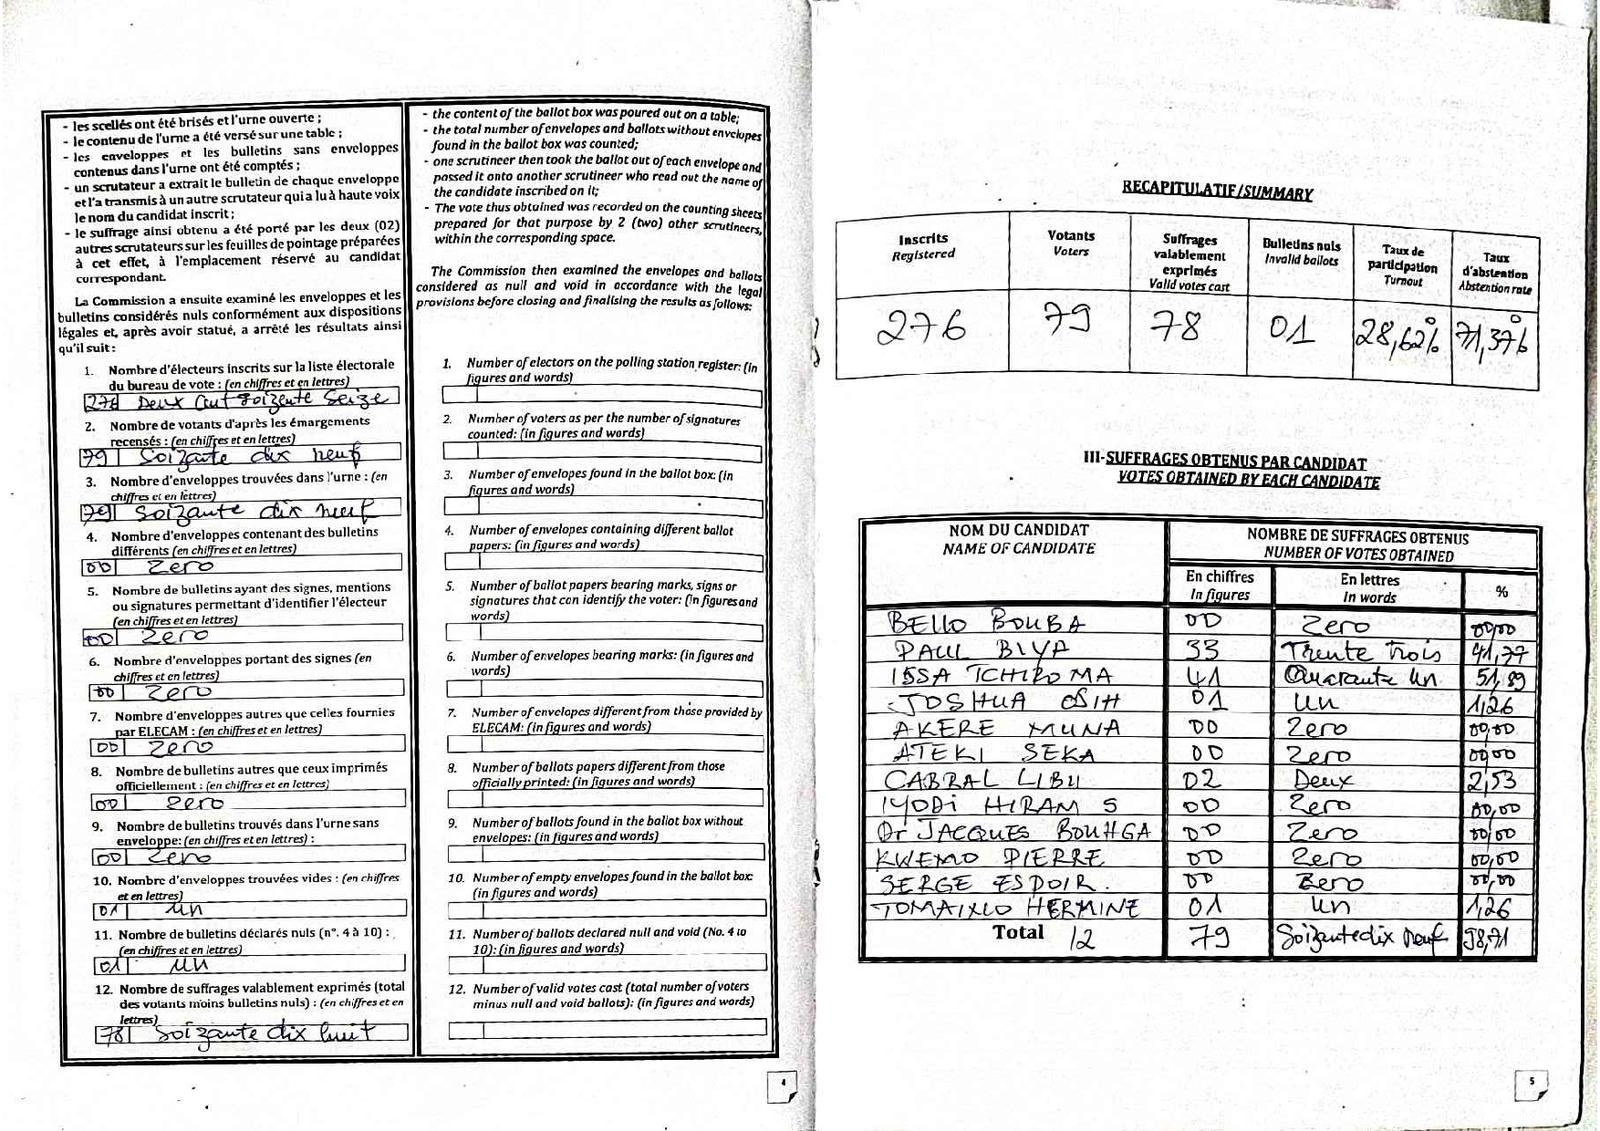 - les scellés ont été brisés et l'urne ouverte ;
- le contenu de l'urne a été versé sur une table ;
- les enveloppes et les bulletins sans enveloppes
contenus dans l'urne ont été comptés ;
- un scrutateur a extrait le bulletin de chaque enveloppe
et l'a transmis à un autre scrutateur qui a lu à haute voix
le nom du candidat inscrit ;
- le suffrage ainsi obtenu a été porté par les deux (02)
autres scrutateurs sur les feuilles de pointage préparées
à cet effet, à l'emplacement réservé au candidat
correspondant.
La Commission a ensuite examiné les enveloppes et les
bulletins considérés nuls conformément aux dispositions
légales et, après avoir statué, a arrêté les résultats ainsi
qu'il suit :
1. Nombre d'électeurs inscrits sur la liste électorale
du bureau de vote : (en chiffres et en lettres)
276 Deux Cent Soizente Seize
2. Nombre de votants d'après les émargements
recensés : (en chiffres et en lettres)
79 Soizante dix neuf
3. Nombre d'enveloppes trouvées dans l'urne : (en
chiffres et en lettres)
79 Soizante dix neuf
4. Nombre d'enveloppes contenant des bulletins
différents (en chiffres et en lettres)
00 Zero
5. Nombre de bulletins ayant des signes, mentions
ou signatures permettant d'identifier l'électeur
(en chiffres et en lettres)
00 Zero
6. Nombre d'enveloppes portant des signes (en
chiffres et en lettres)
00 Zero
7. Nombre d'enveloppes autres que celles fournies
par ELECAM : (en chiffres et en lettres)
00 Zero
8. Nombre de bulletins autres que ceux imprimés
officiellement : (en chiffres et en lettres)
00 Zero
9. Nombre de bulletins trouvés dans l'urne sans
enveloppe: (en chiffres et en lettres) :
00 Zero
10. Nombre d'enveloppes trouvées vides : (en chiffres
et en lettres)
01 un
11. Nombre de bulletins déclarés nuls (n°. 4 à 10) :
(en chiffres et en lettres)
01 un
12. Nombre de suffrages valablement exprimés (total
des votants moins bulletins nuls) : (en chiffres et en
lettres)
78 Soizante dix huit
- the content of the ballot box was poured out on a table;
- the total number of envelopes and ballots without envelopes
found in the ballot box was counted;
- one scrutineer then took the ballot out of each envelope and
passed it onto another scrutineer who read out the name of
the candidate inscribed on it;
- The vote thus obtained was recorded on the counting sheets
prepared for that purpose by 2 (two) other scrutineers,
within the corresponding space.
The Commission then examined the envelopes and ballots
considered as null and void in accordance with the legal
provisions before closing and finalising the results as follows:
1. Number of electors on the polling station register: (in
figures and words)
2. Number of voters as per the number of signatures
counted: (in figures and words)
3. Number of envelopes found in the ballot box: (in
figures and words)
4. Number of envelopes containing different ballot
papers: (in figures and words)
5. Number of ballot papers bearing marks, signs or
signatures that can identify the voter: (in figures and
words)
6. Number of envelopes bearing marks: (in figures and
words)
7. Number of envelopes different from those provided by
ELECAM: (in figures and words)
8. Number of ballots papers different from those
officially printed: (in figures and words)
9. Number of ballots found in the ballot box without
envelopes: (in figures and words)
10. Number of empty envelopes found in the ballot box:
(in figures and words)
11. Number of ballots declared null and void (No. 4 to
10): (in figures and words)
12. Number of valid votes cast (total number of voters
minus null and void ballots): (in figures and words)
4
RECAPITULATIF/SUMMARY
Inscrits Registered
Votants Voters
Suffrages valablement exprimés Valid votes cast
Bulletins nuls Invalid ballots
Taux de participation Turnout
Taux d'abstention Abstention rate
276 79 78 01 28,62% 71,37%
III-SUFFRAGES OBTENUS PAR CANDIDAT
VOTES OBTAINED BY EACH CANDIDATE
NOM DU CANDIDAT
NAME OF CANDIDATE
NOMBRE DE SUFFRAGES OBTENUS
NUMBER OF VOTES OBTAINED
En chiffres En lettres %
In figures In words
BELLO BOUBA 00 Zero 00,00
PAUL BIYA 33 Trente trois 41,77
ISSA TCHIROMA 41 Quarante un 51,89
JOSHUA OSIH 01 un 1,26
AKERE MUNA 00 Zero 00,00
ATEKI SEKA 00 Zero 00,00
CABRAL LIBII 02 Deux 2,53
IYODI HIRAM S 00 Zero 00,00
Dr JACQUES BOUHGA 00 Zero 00,00
KWEMO PIERRE 00 Zero 00,00
SERGE ESPOIR. 00 Zero 00,00
TOMAINO HERMINE 01 un 1,26
Total 12 79 Soizante dix neuf 98,71
5